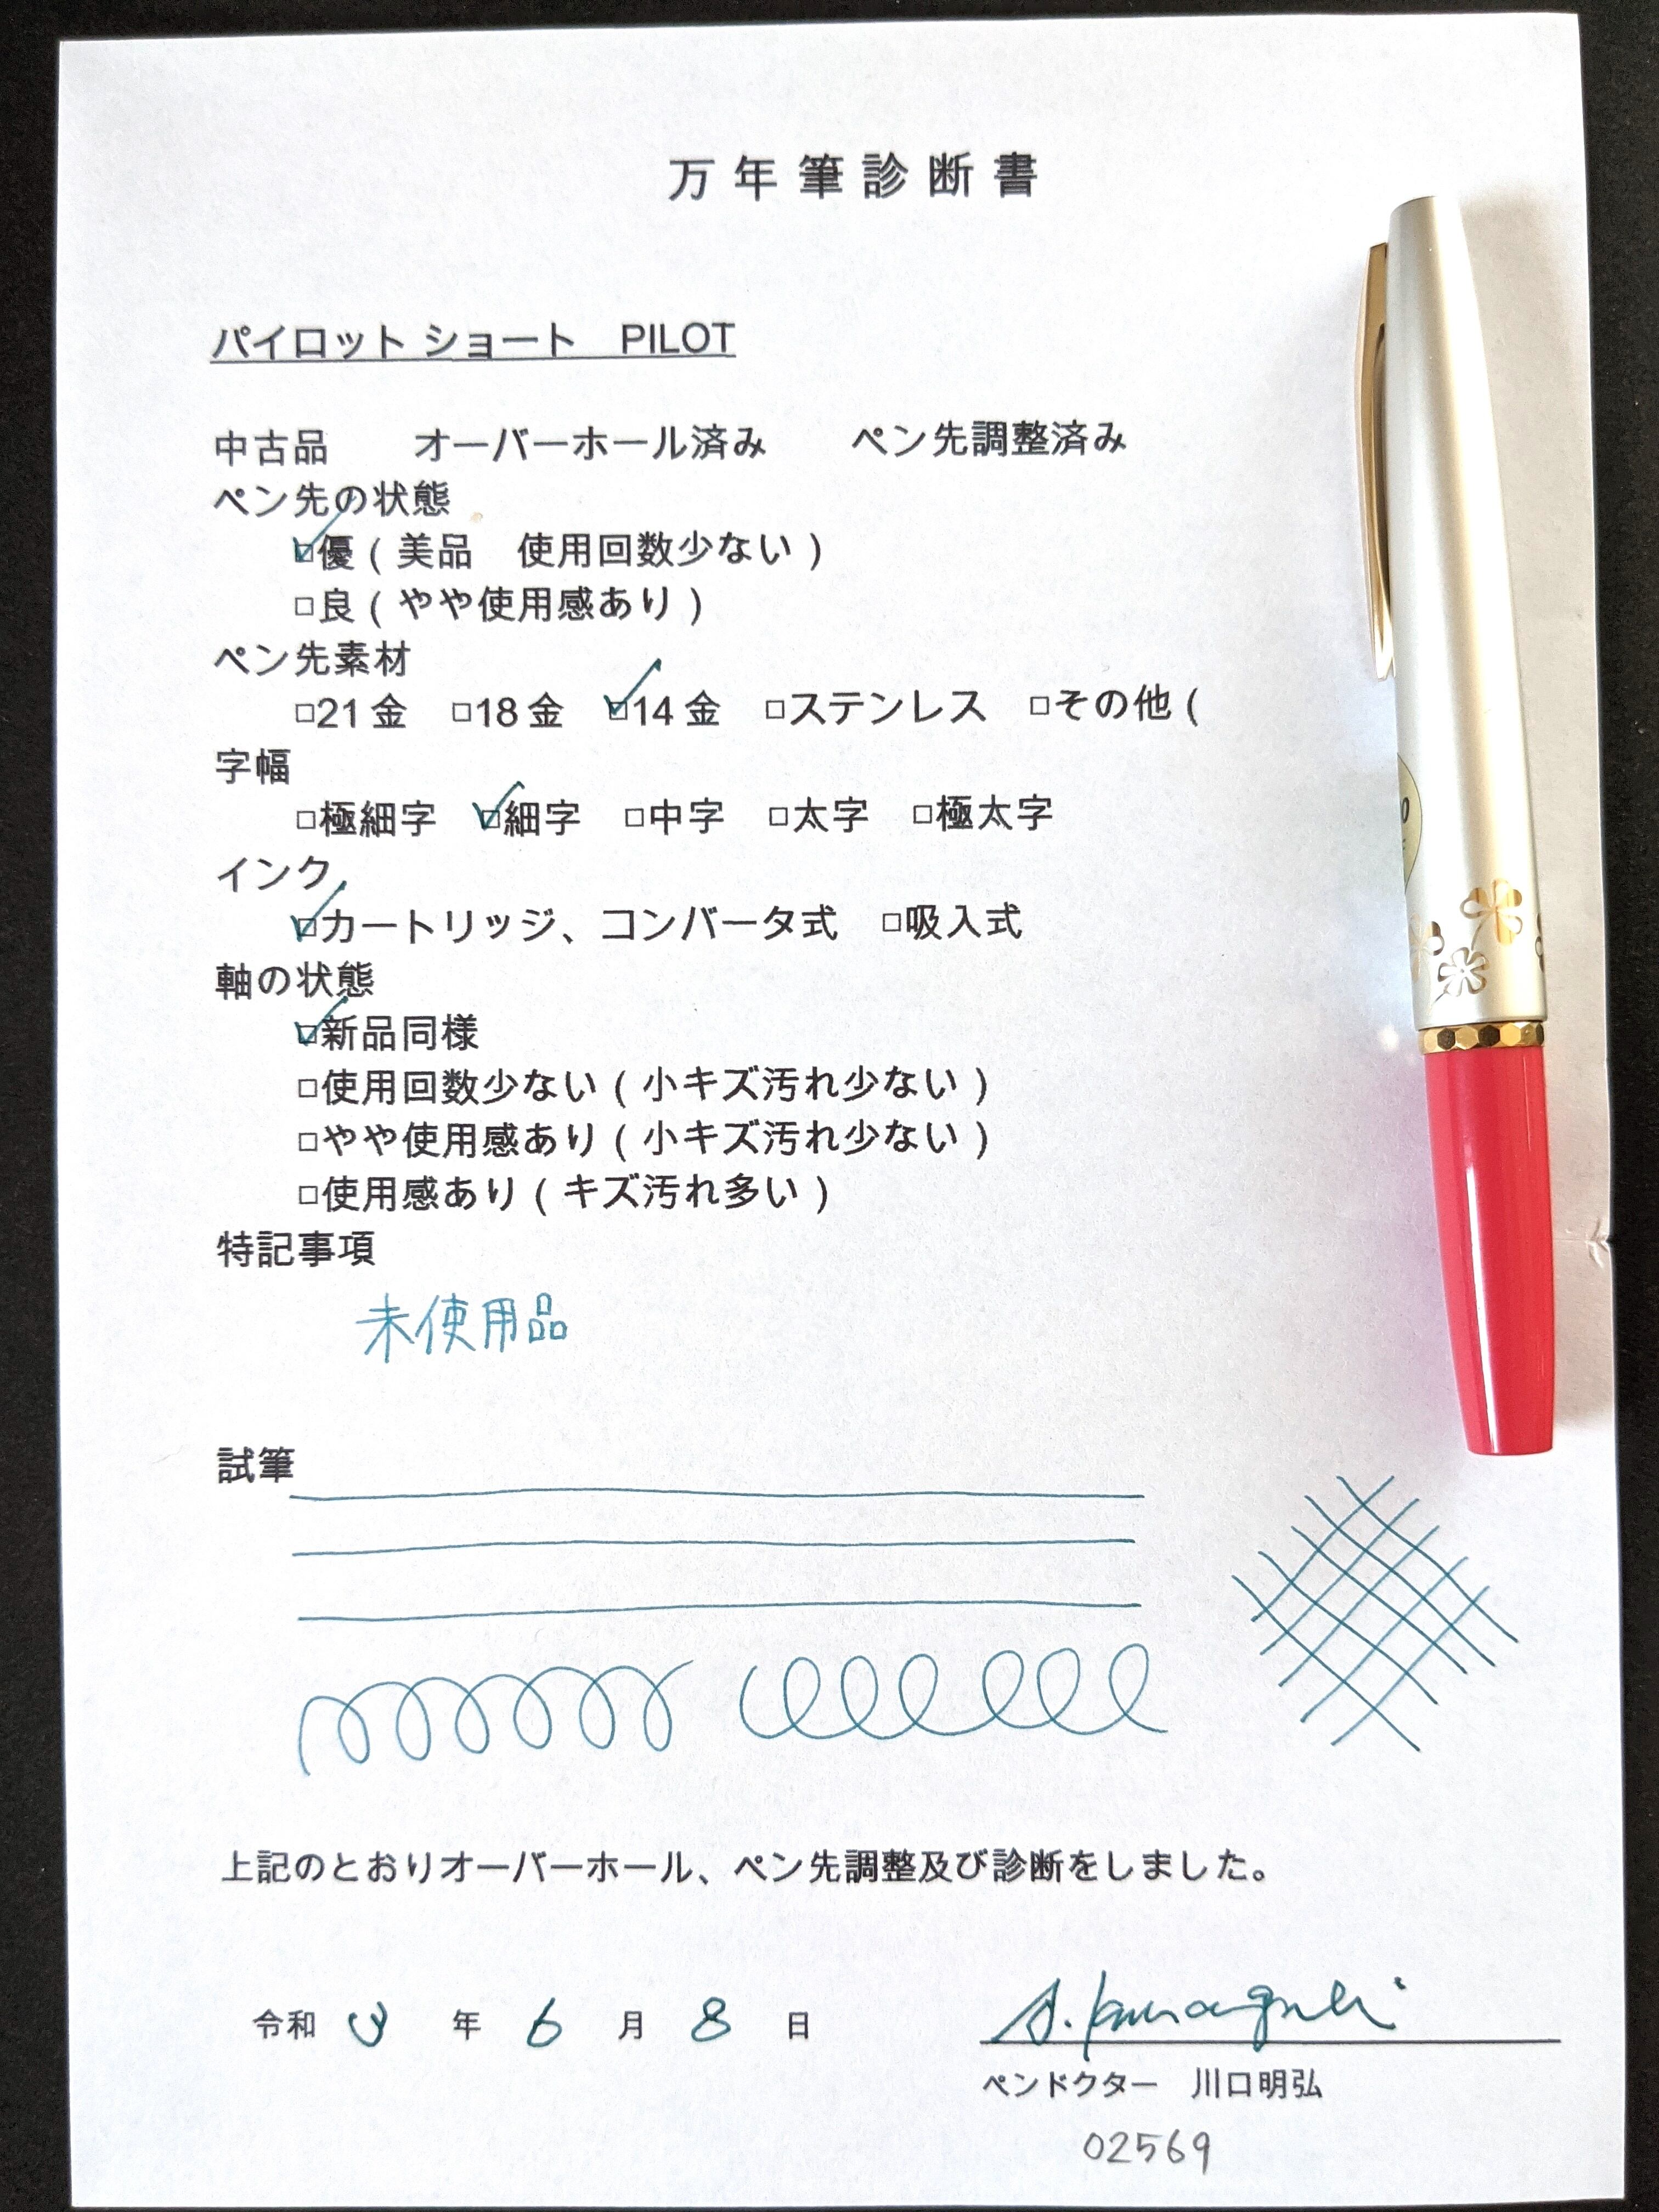 万年筆診断書
パイロット ショート　PILOT
中古品　　オーバーホール済み　　ペン先調整済み
ペン先の状態
☑優（美品　使用回数少ない）
□良（やや使用感あり）
ペン先素材
□21金　□18金　☑14金　□ステンレス　□その他（
字幅
□極細字　☑細字　□中字　□太字　□極太字
インク
☑カートリッジ、コンバータ式　□吸入式
軸の状態
☑新品同様
□使用回数少ない（小キズ汚れ少ない）
□やや使用感あり（小キズ汚れ少ない）
□使用感あり（キズ汚れ多い）
特記事項
未使用品
試筆
上記のとおりオーバーホール、ペン先調整及び診断をしました。
令和 3 年 6 月 8 日
ペンドクター　川口明弘
02569